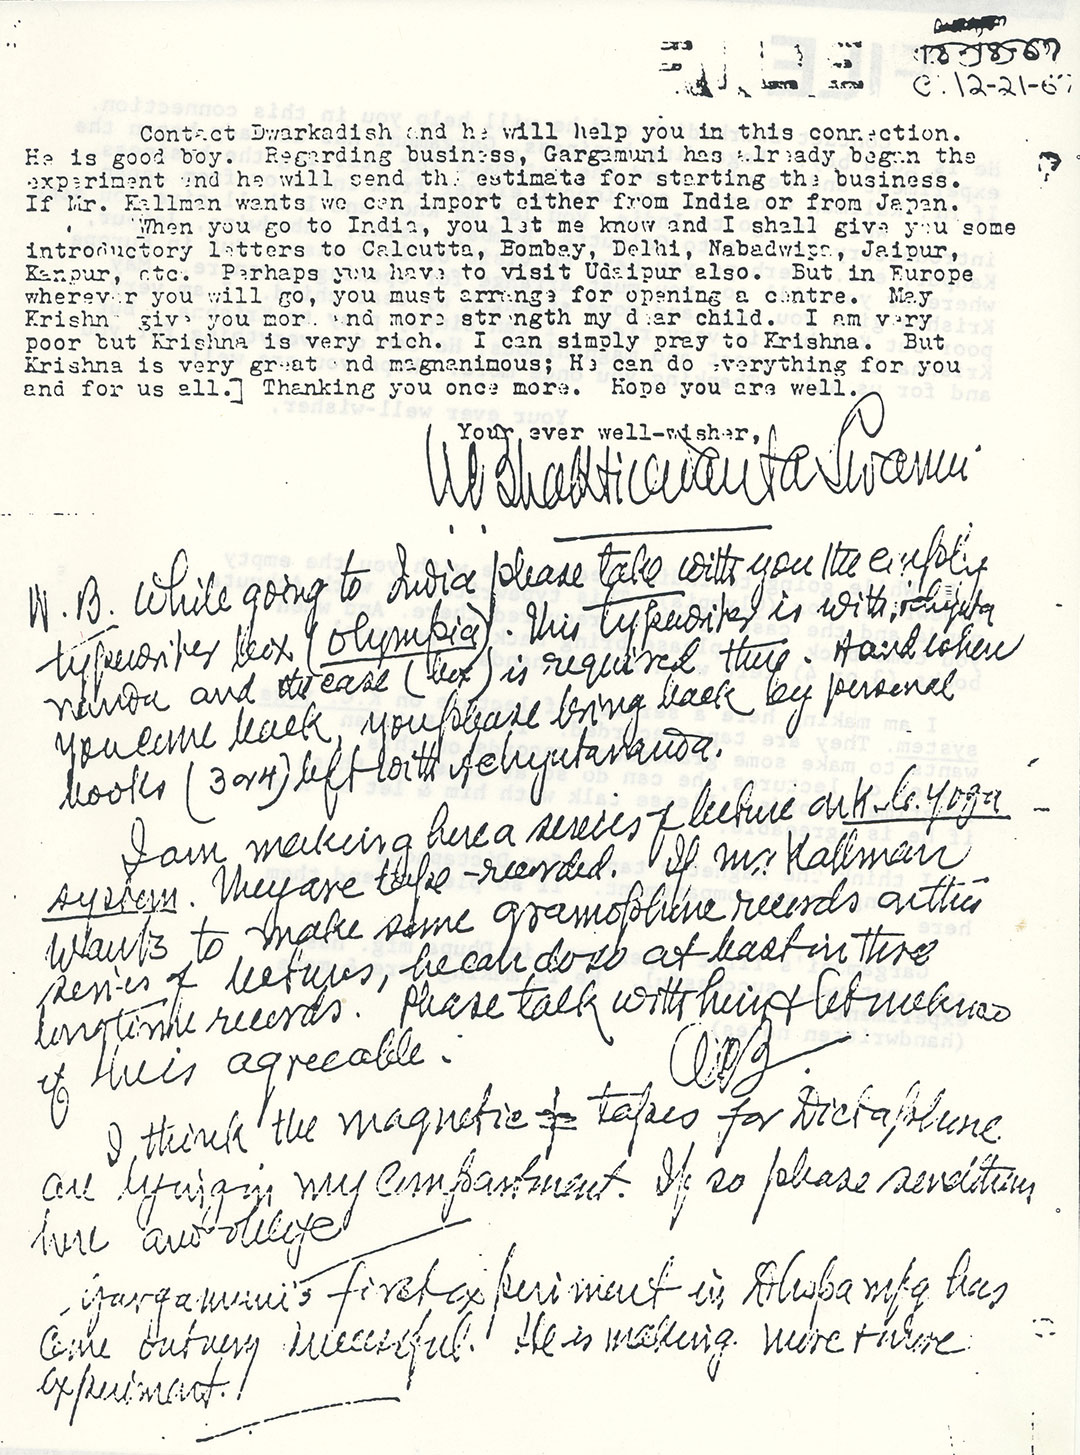 C. 12-21-67
Contact Dwarkadish and he will help you in this connection.
He is good boy. Regarding business, Gargamuni has already began the
experiment and he will send the estimate for starting the business.
If Mr. Kallman wants we can import either from India or from Japan.
When you go to India, you let me know and I shall give you some
introductory letters to Calcutta, Bombay, Delhi, Nabadwipa, Jaipur,
Kanpur, etc. Perhaps you have to visit Udaipur also. But in Europe
wherever you will go, you must arrange for opening a centre. May
Krishna give you more and more strength my dear child. I am very
poor but Krishna is very rich. I can simply pray to Krishna. But
Krishna is very great and magnanimous; He can do everything for you
and for us all.] Thanking you once more. Hope you are well.
Your ever well-wisher,
A.C. Bhaktivedanta Swami
N.B. While going to India please take with you the empty
typewriter box (Olympia). This typewriter is with Achyuta
nanda and the case (box) is required there. And when
you come back, you please bring back my personal
books (3 or 4) left with Achyutananda.
I am making here a series of lecture on K.C. Yoga
system. They are tape-recorded. If Mr. Kallman
wants to make some gramophone records on this
series of lectures, he can do so at least in three
longtime records. Please talk with him & let me know
if he is agreeable.
ACB
I think the magnetic tapes for Dictaphone
are lying in my compartment. If so please send them
here and oblige
Gargamuni's first experiment in Dhupa mfg has
come out very successful. He is making more & more
experiment.